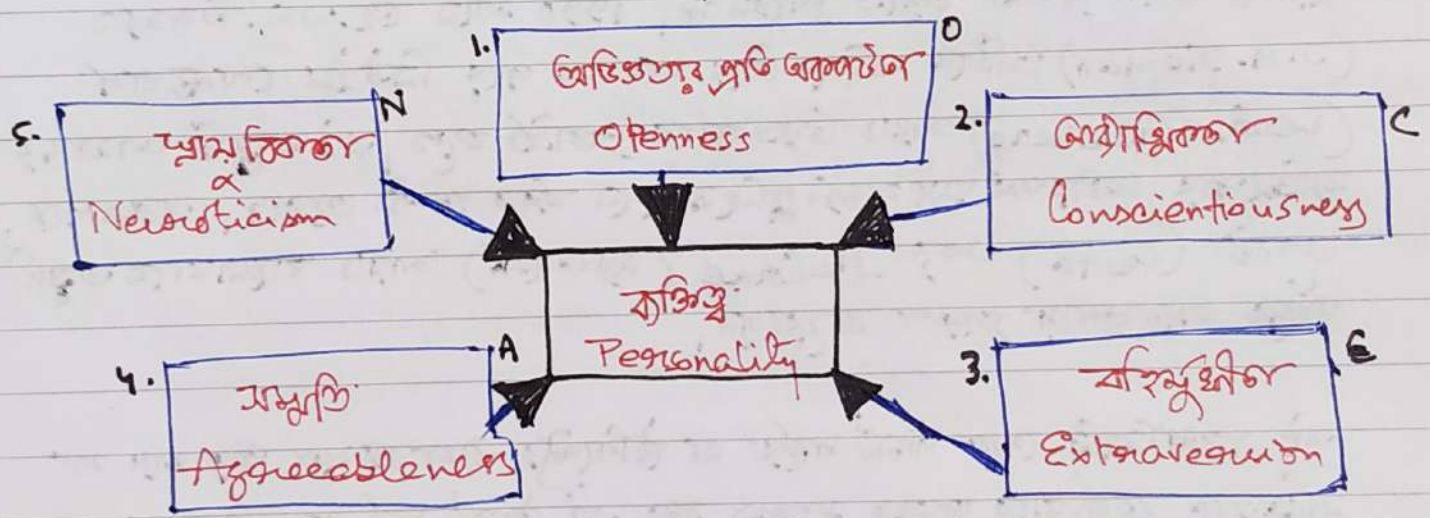 1. O
অভিজ্ঞতার প্রতি অকপটতা
Openness
2. C
Conscientiousness
3. E
বহির্মুখীতা
Extraversion
4. A
সম্মতি
Agreeableness
5. N
স্নায়ুবিকতা
Neuroticism
ব্যক্তিত্ব
Personality